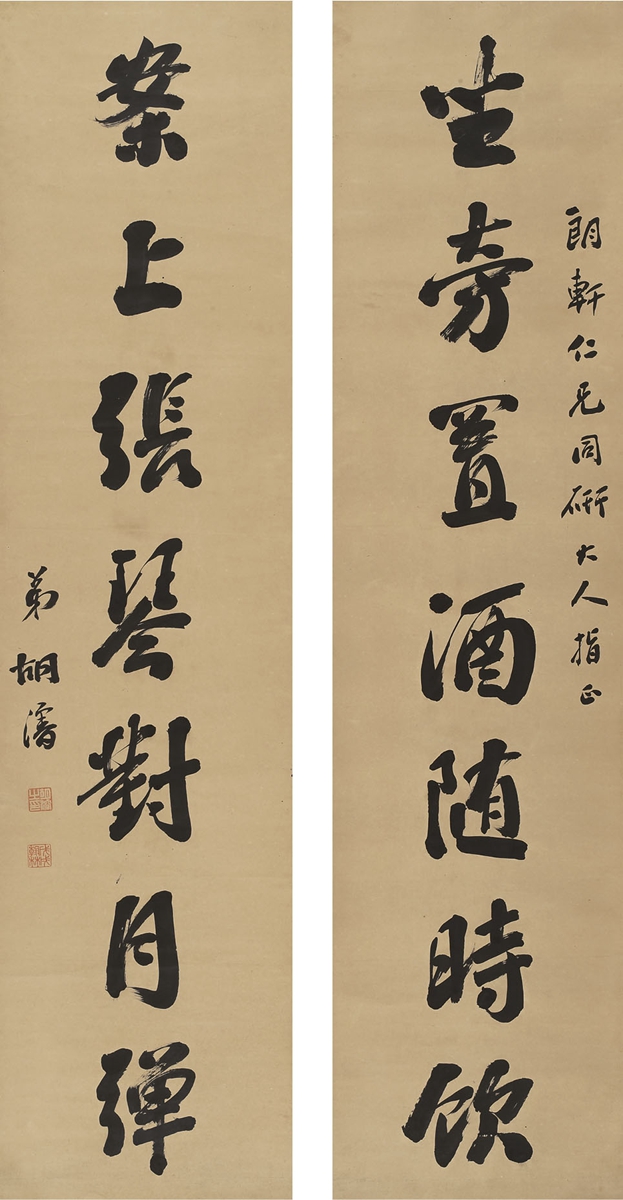 朗軒仁兄同研大人指正
坐旁置酒随時飲
案上張琴對月弹
弟胡